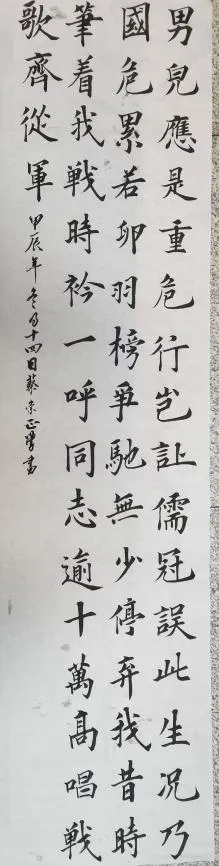 男兒應是重危行岂让儒冠誤此生况乃
國危累若卵羽榜爭馳無少停弃我昔時
筆着我戦時衿一呼同志逾十萬髙唱戦
歌齊從軍 甲辰年冬月十四日蔡